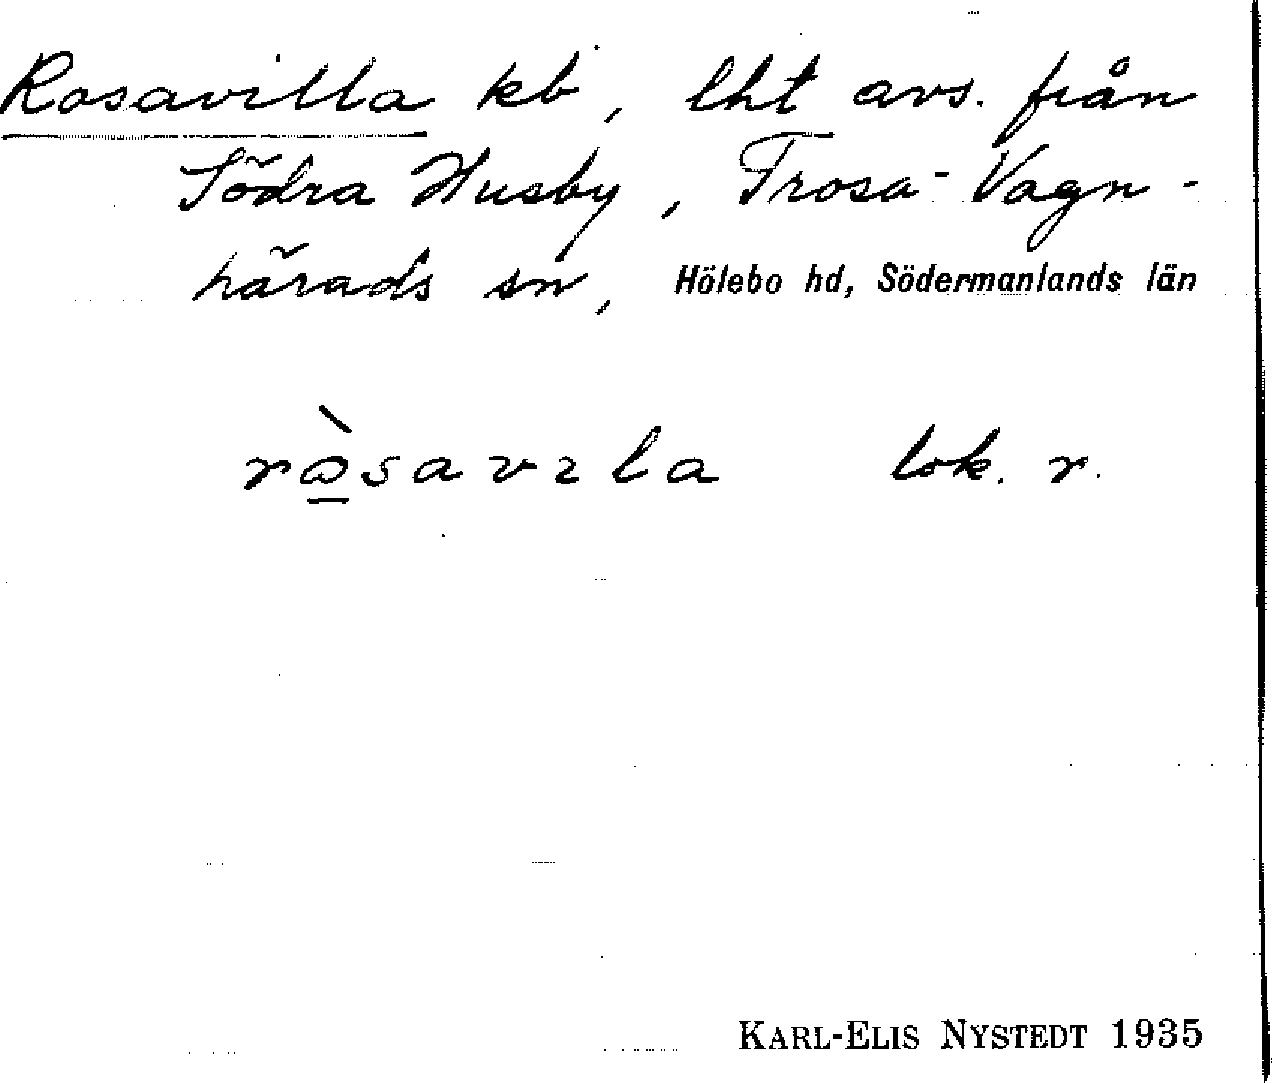 Rosavilla kb, lht avs. från
Södra Husby, Trosa-Vagn-
härads sn, Hölebo hd, Södermanlands län
rὼ̲savɩla lok. r.
KARL-ELIS NYSTEDT 1935